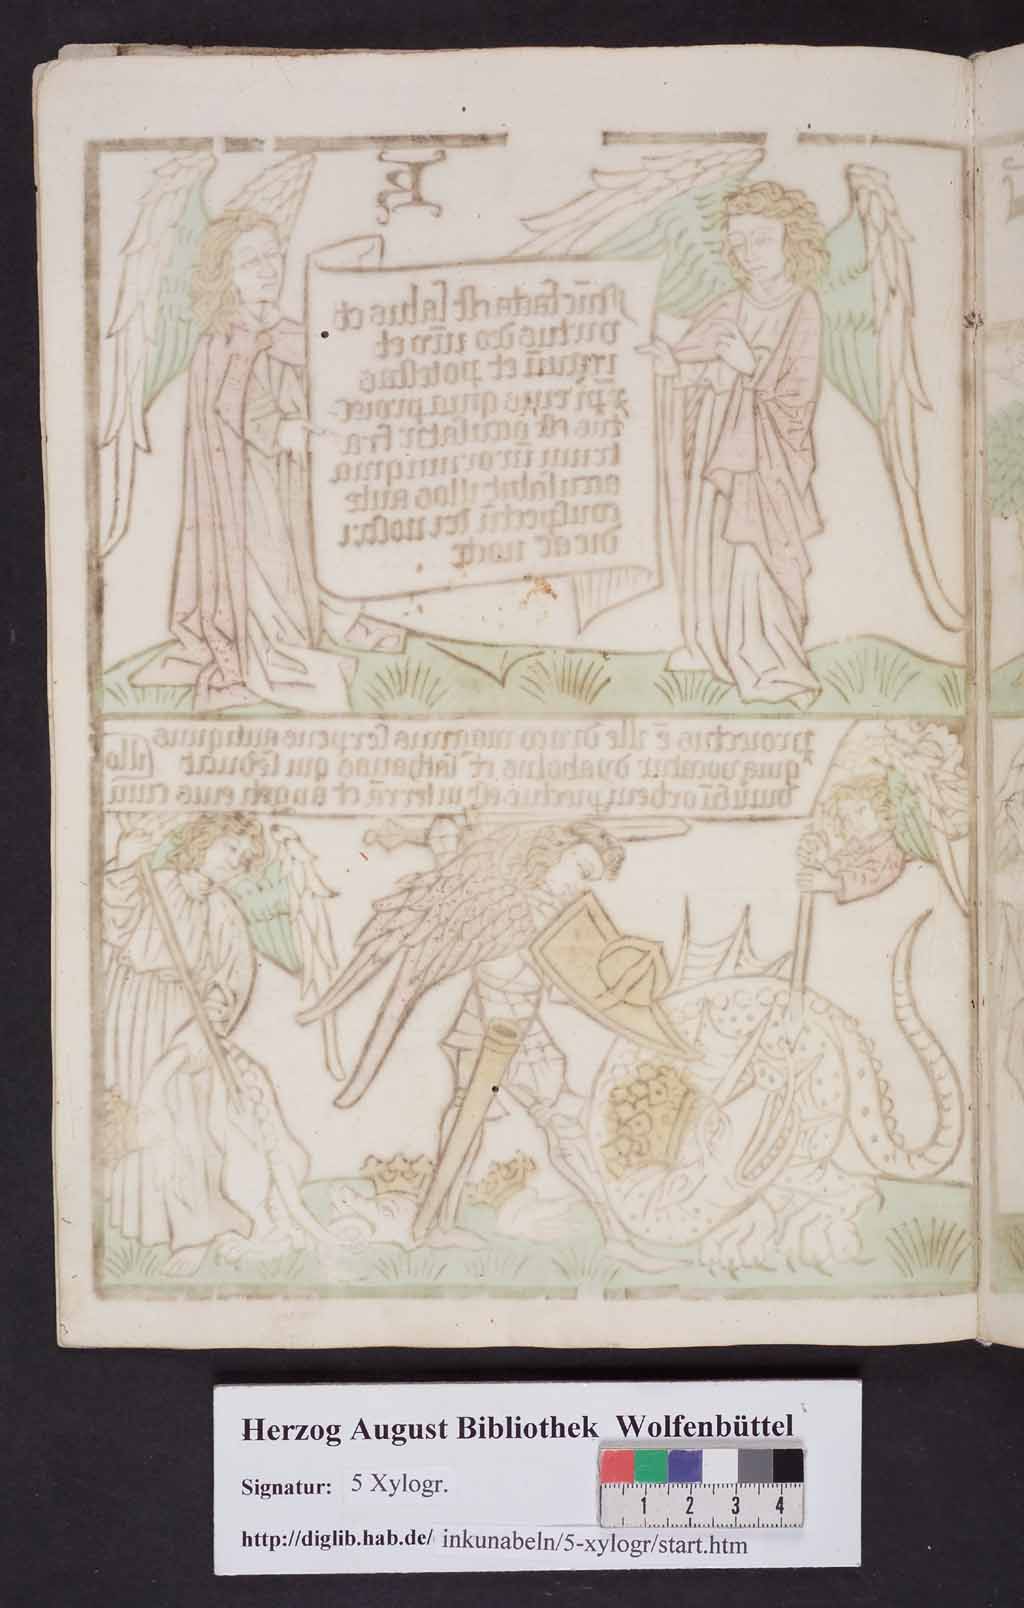 K
Nūc facta est salus et
virtus deo nr̄o et
regnū et potestas
xp̄i eius quia proiec
tus est accusator fra
trum nr̄orum qui
accusabat illos ante
conspectū dei nostri
die ac nocte
proiectus ē ille draco magnus serpens antiquus
qui vocatur dyabolus et sathanas qui seducit
orbem proiectus est in terrā et angeli eius cum
illo
Herzog August Bibliothek Wolfenbüttel
Signatur: 5 Xylogr.
1 2 3 4
http://diglib.hab.de/ inkunabeln/5-xylogr/start.htm